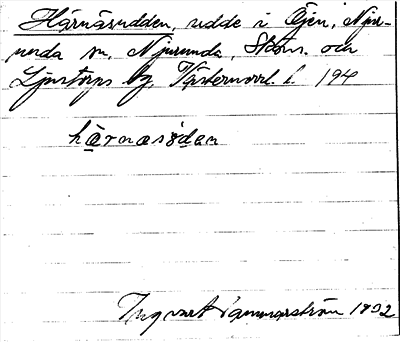 Härnäsudden, udde i Öjen, Njur-
unda sn, Njurunda, Sköns och
Ljustorps tg, Västernorrl. l. 194
härnäsúden
Ingvart Hammarström 1932